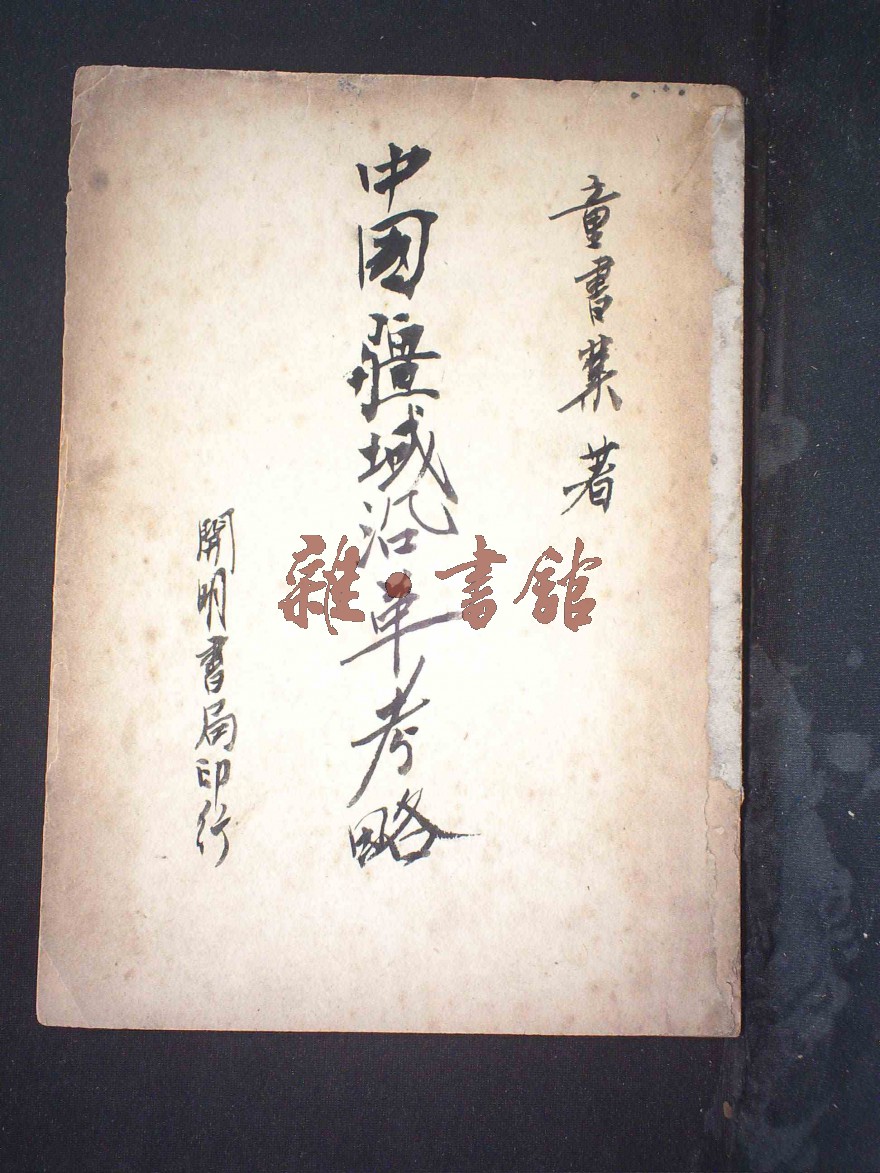 童書業著
中国疆域沿革考略
開明書局印行
雜·書館